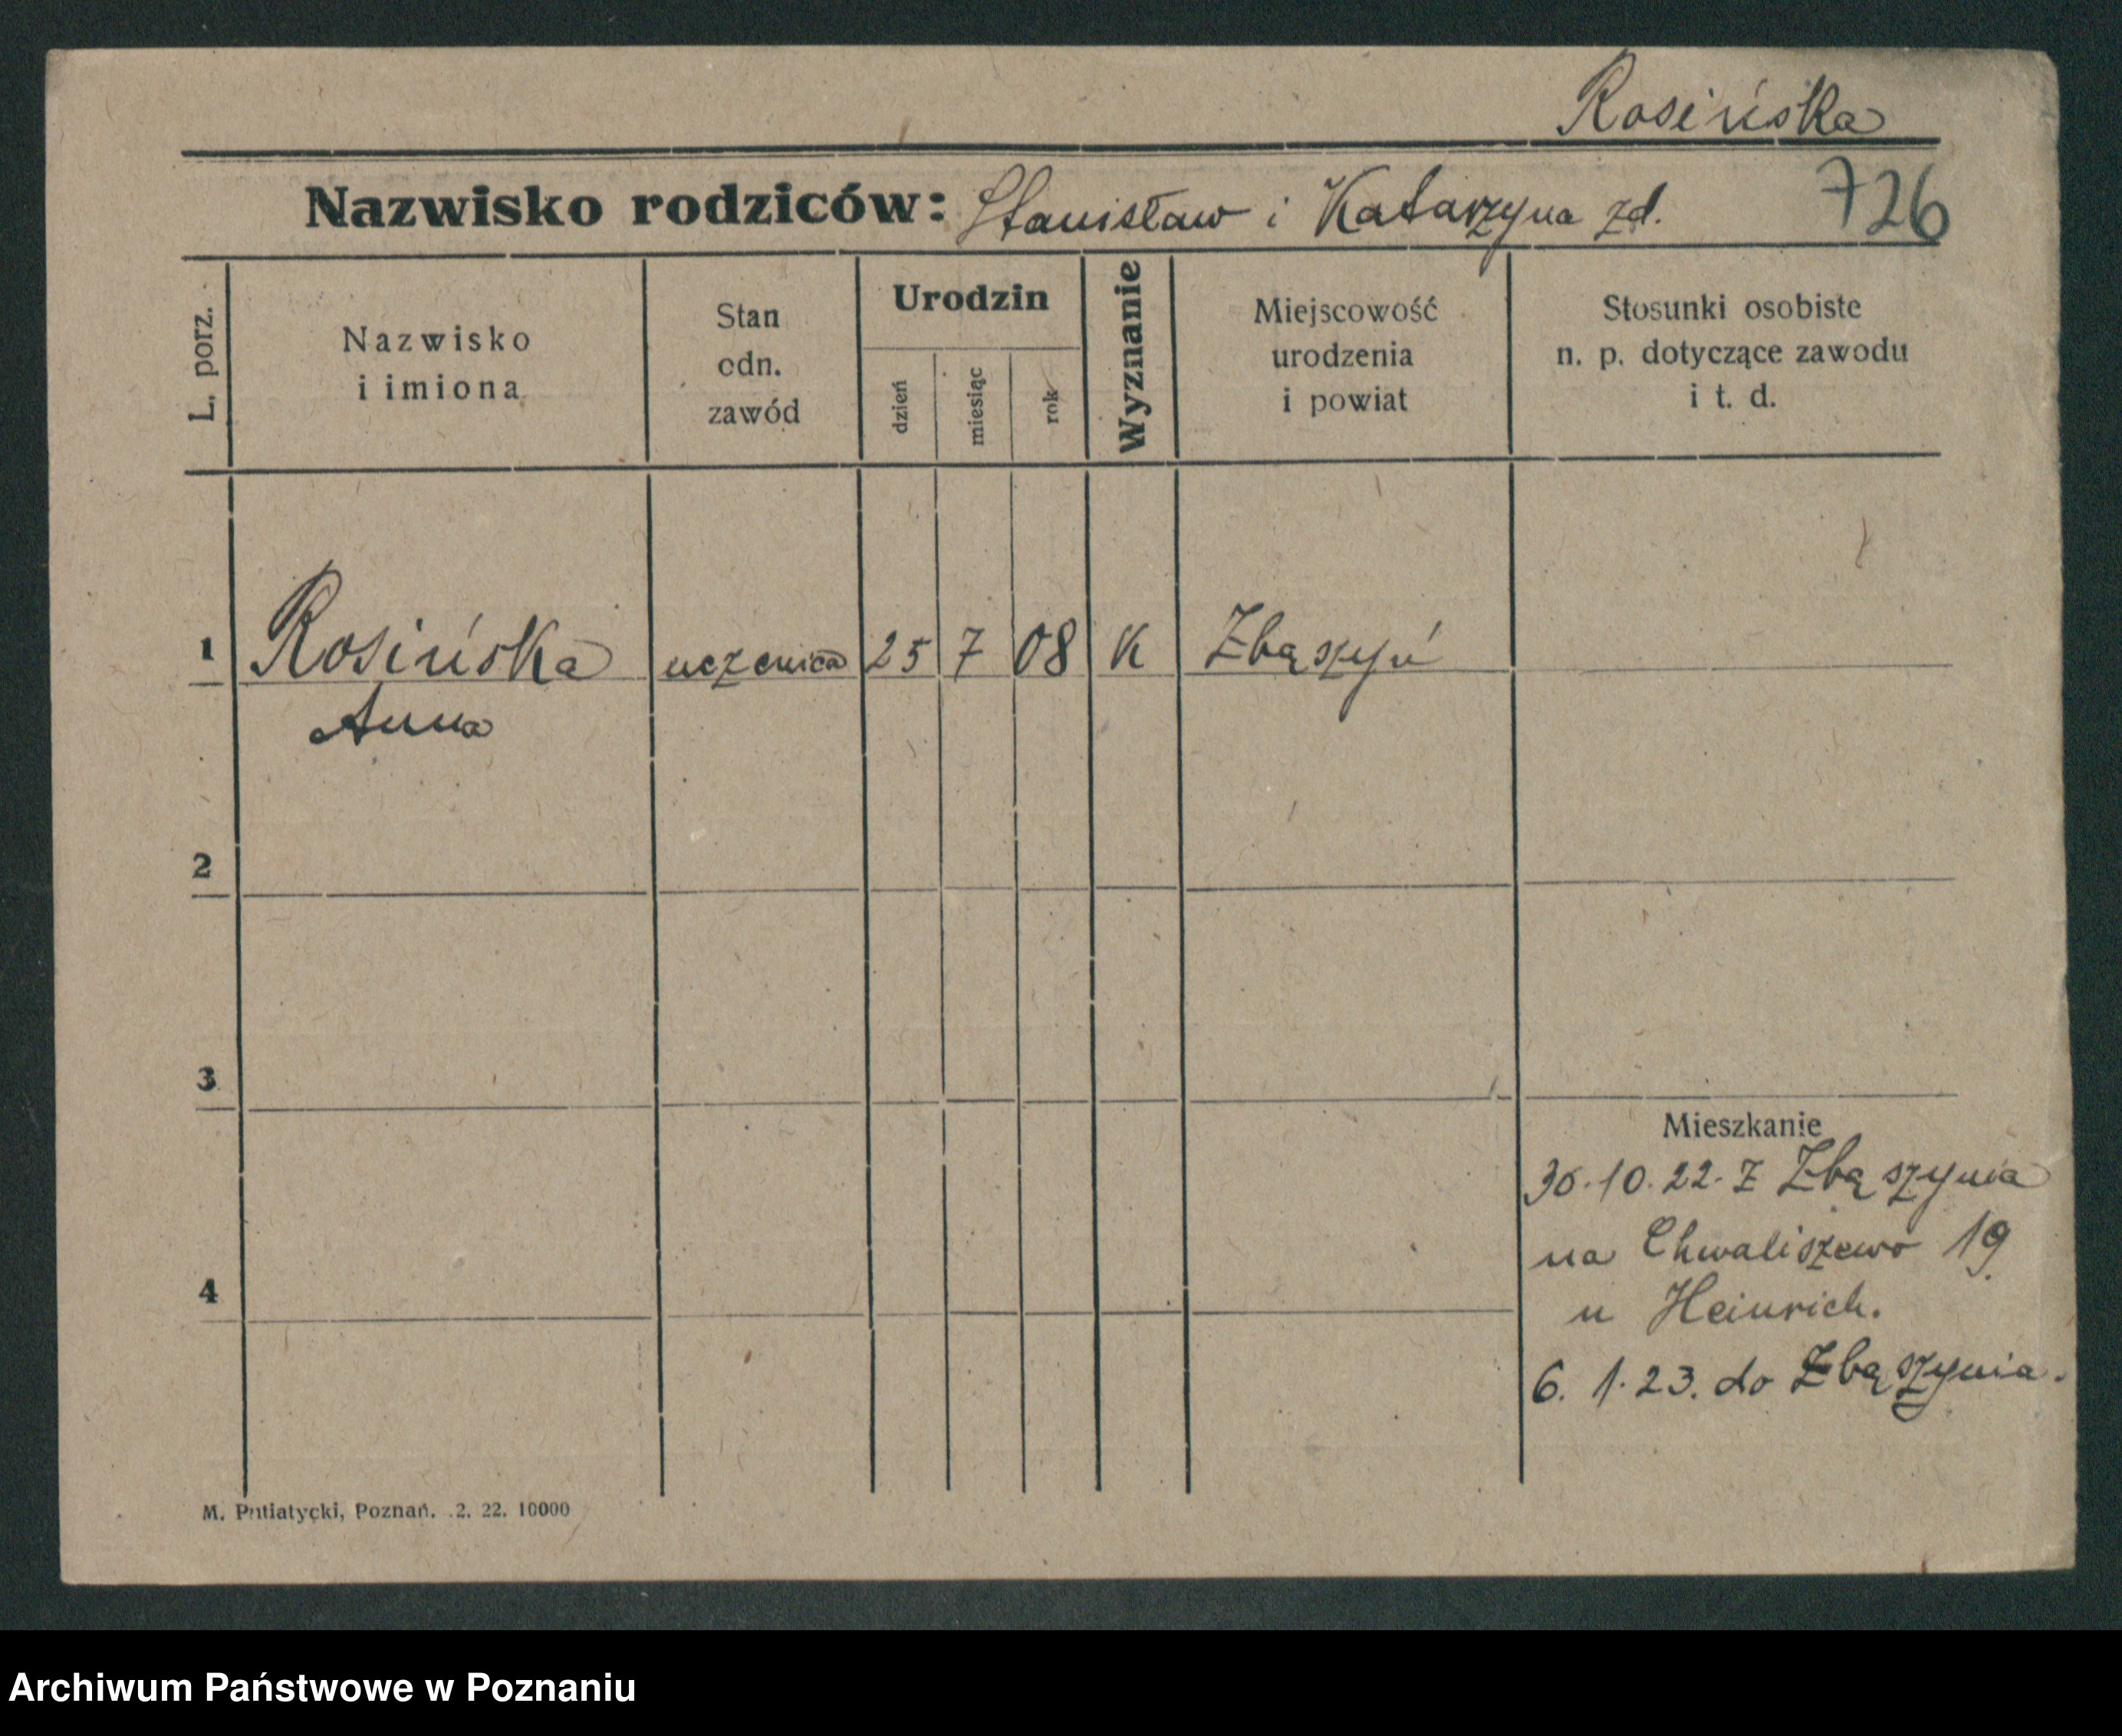 Rosińska
Nazwisko rodziców: Stanisław i Katarzyna zd. 726
L. porz.
Nazwisko
i imiona
Stan
odn.
zawód
Urodzin
dzień
miesiąc
rok
Wyznanie
Miejscowość
urodzenia
i powiat
Stosunki osobiste
n. p. dotyczące zawodu
i t. d.
1 Rosińska uczenica 25 7 08 K Zbąszyń
Anna
2
3
Mieszkanie
30.10.22. z Zbąszynia
na Chwaliszewo 19
4
u Heinrich.
6. 1.23. do Zbąszynia.
M. Putiatycki, Poznań. .2. 22. 10000
Archiwum Państwowe w Poznaniu